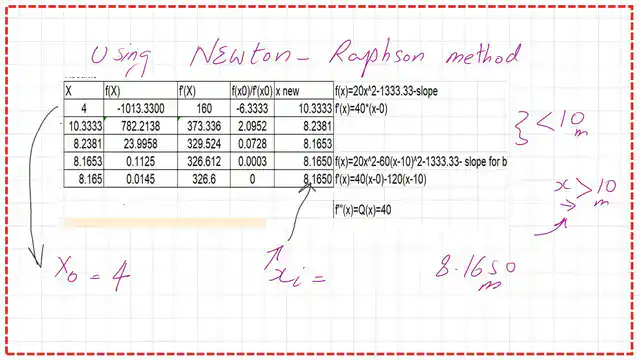 Using Newton-Raphson method
X f(X) f'(X) f(x0)/f'(x0) x new f(x)=20x^2-1333.33-slope
4 -1013.3300 160 -6.3333 10.3333 f'(x)=40*(x-0)
10.3333 782.2138 373.336 2.0952 8.2381
8.2381 23.9958 329.524 0.0728 8.1653
8.1653 0.1125 326.612 0.0003 8.1650 f(x)=20x^2-60(x-10)^2-1333.33- slope for b
8.165 0.0145 326.6 0 8.1650 f'(x)=40(x-0)-120(x-10)
f'''(x)=Q(x)=40
} <10 m
x >10 m
X0 = 4
xi = 8.1650 m